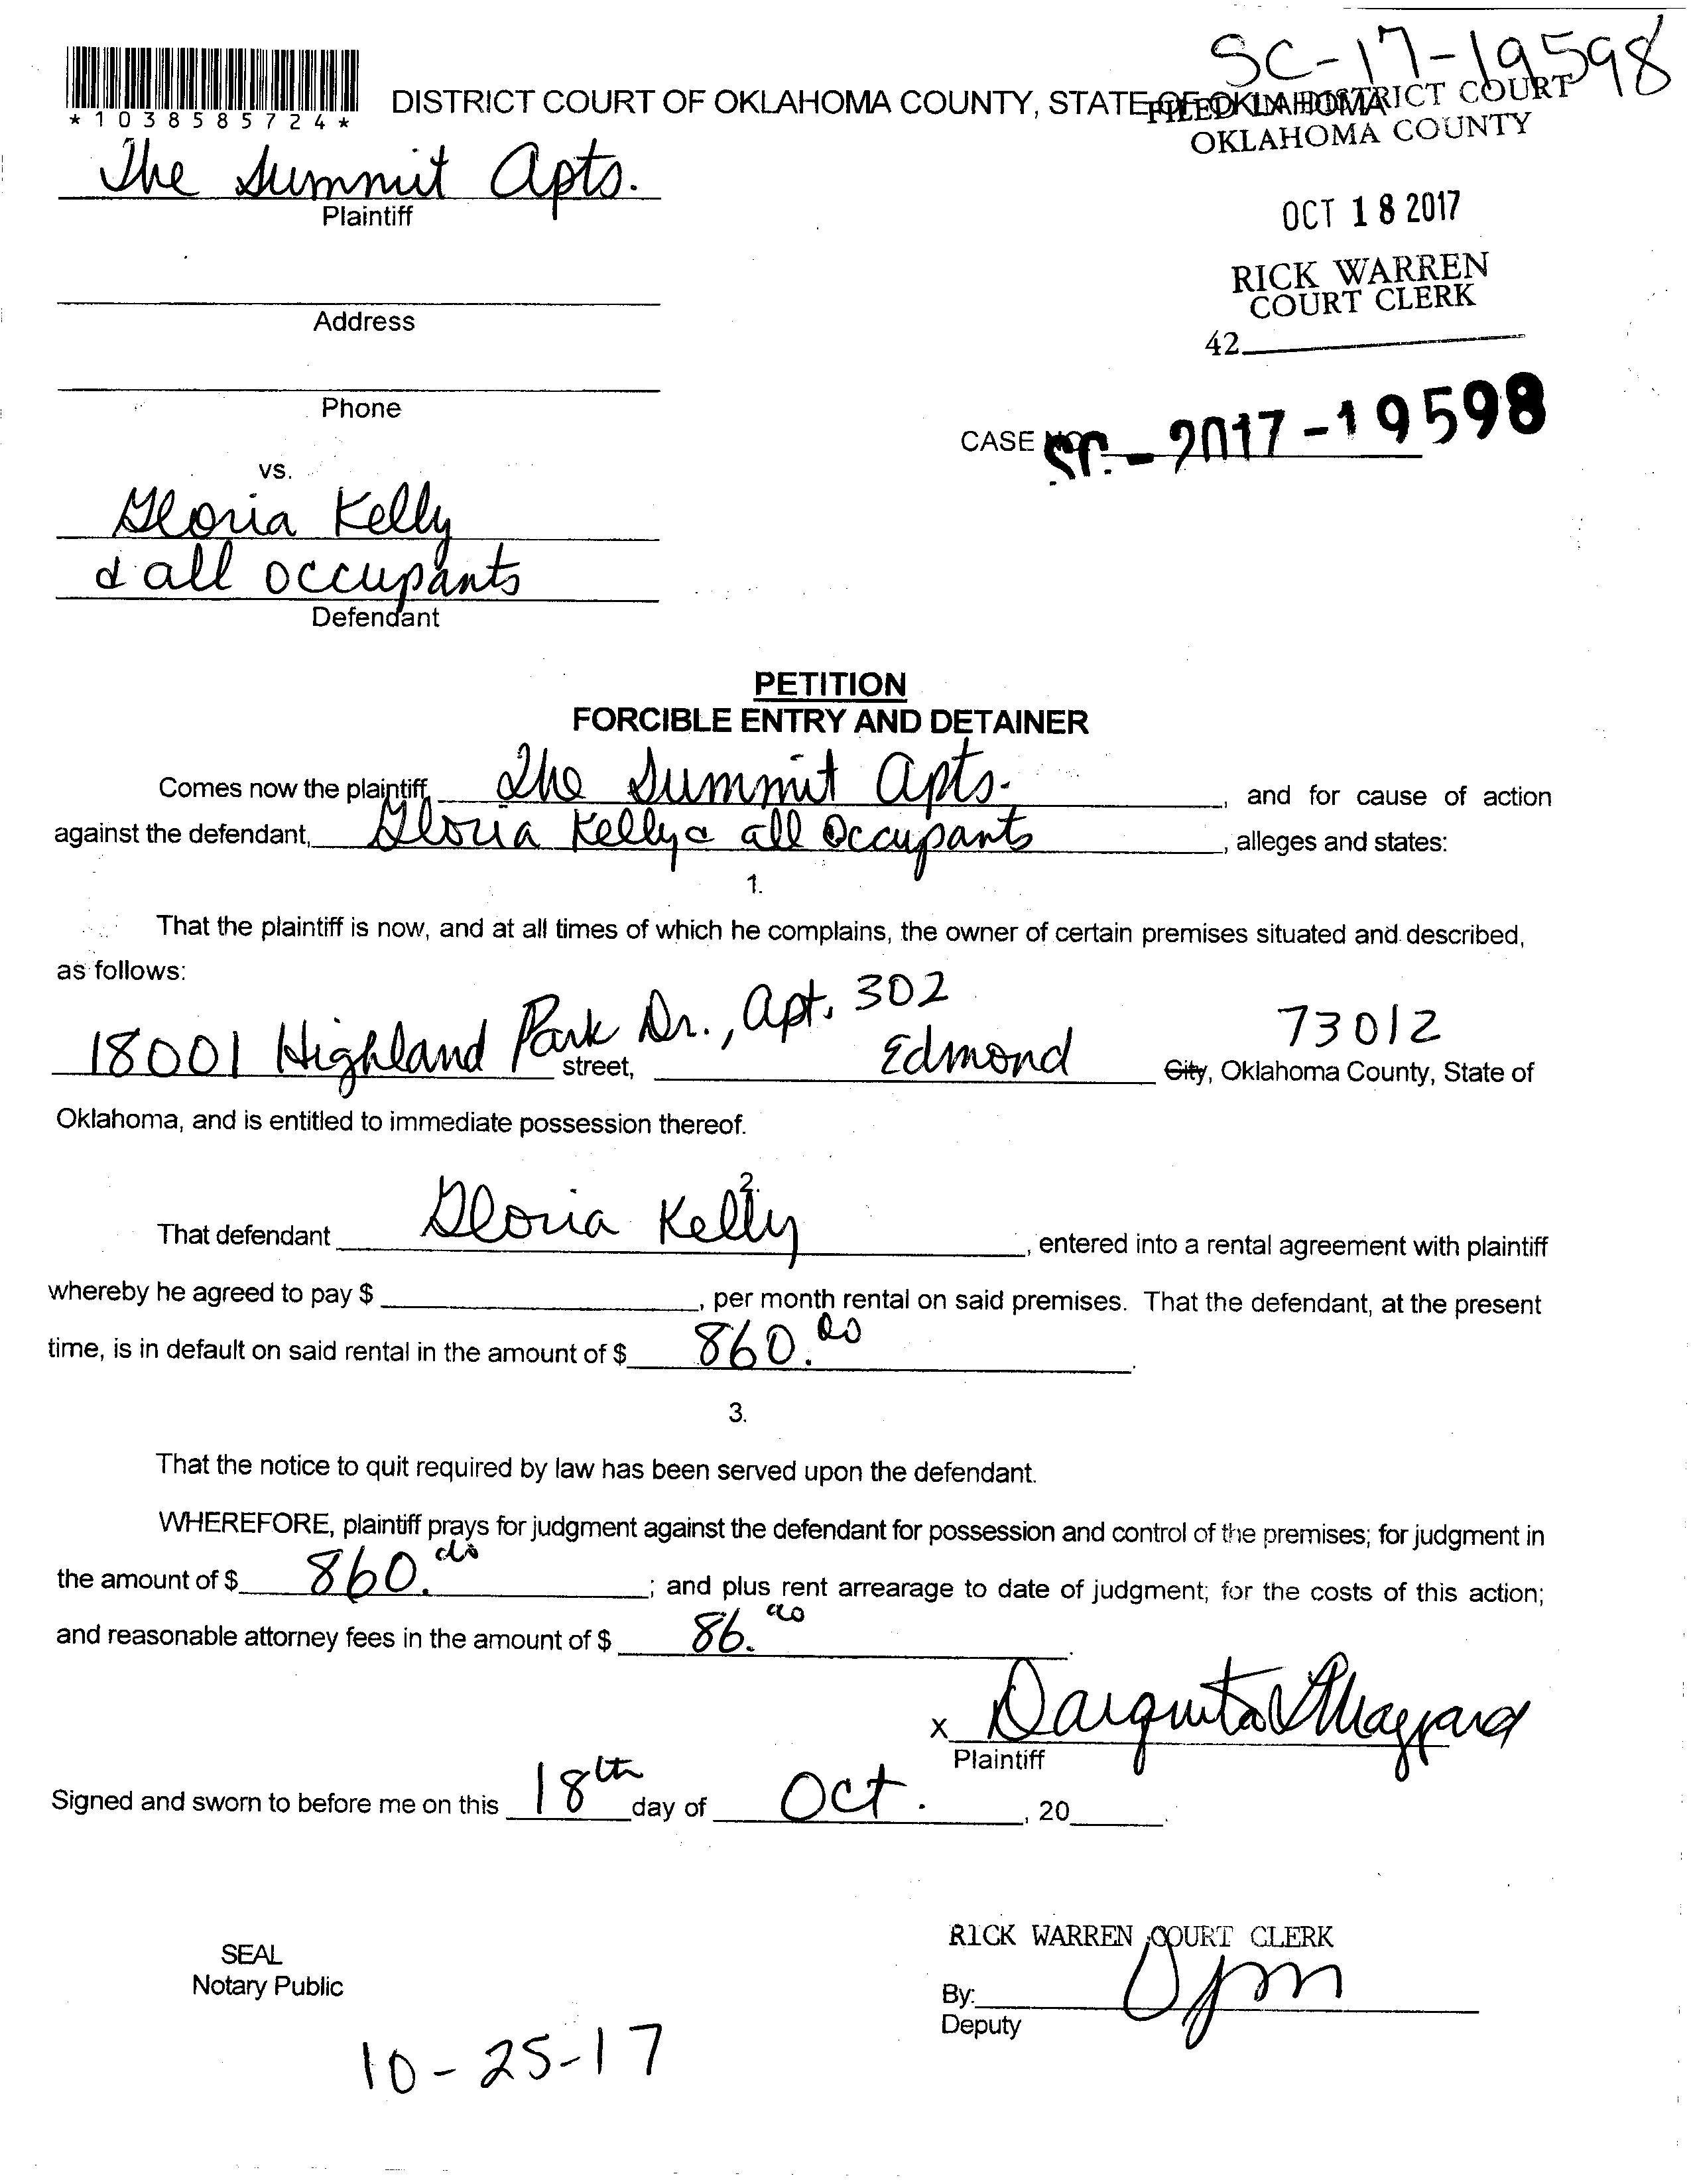 SC-17-19598
*1038585724*
DISTRICT COURT OF OKLAHOMA COUNTY, STATE OF OKLAHOMA
FILED IN DISTRICT COURT
OKLAHOMA COUNTY
The Summit Apts.
Plaintiff
OCT 18 2017
RICK WARREN
COURT CLERK
42
Address
Phone
CASE NO. SC-2017-19598
vs.
Gloria Kelly
& all occupants
Defendant
PETITION
FORCIBLE ENTRY AND DETAINER
Comes now the plaintiff, The Summit Apts. , and for cause of action
against the defendant, Gloria Kelly & all Occupants , alleges and states:
1.
That the plaintiff is now, and at all times of which he complains, the owner of certain premises situated and described,
as follows:
18001 Highland Park Dr., Apt. 302 street, Edmond 73012 City, Oklahoma County, State of
Oklahoma, and is entitled to immediate possession thereof.
2.
That defendant Gloria Kelly , entered into a rental agreement with plaintiff
whereby he agreed to pay $ , per month rental on said premises. That the defendant, at the present
time, is in default on said rental in the amount of $ 860.00 .
3.
That the notice to quit required by law has been served upon the defendant.
WHEREFORE, plaintiff prays for judgment against the defendant for possession and control of the premises; for judgment in
the amount of $ 860.00 ; and plus rent arrearage to date of judgment; for the costs of this action;
and reasonable attorney fees in the amount of $ 86.00 .
x
Plaintiff
Signed and sworn to before me on this 18th day of Oct. , 20 .
RICK WARREN COURT CLERK
SEAL
Notary Public
By:
Deputy
10-25-17